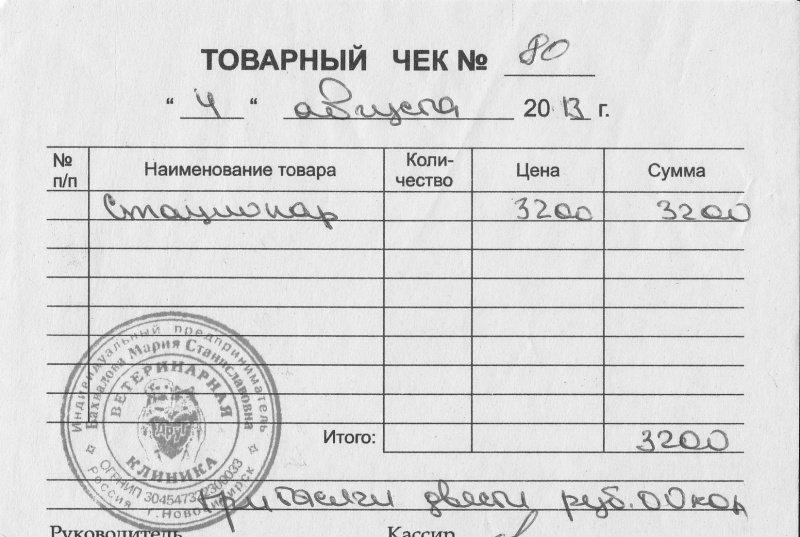 ТОВАРНЫЙ ЧЕК № 80
" 4 " августа 2013 г.
№ п/п Наименование товара Коли-чество Цена Сумма
Стационар 3200 3200
Итого: 3200
три тысячи двести руб. 00 коп
Руководитель Кассир
Индивидуальный предприниматель
Мария Станиславовна
ВЕТЕРИНАРНАЯ
Друг
КЛИНИКА
Россия г. Новосибирск